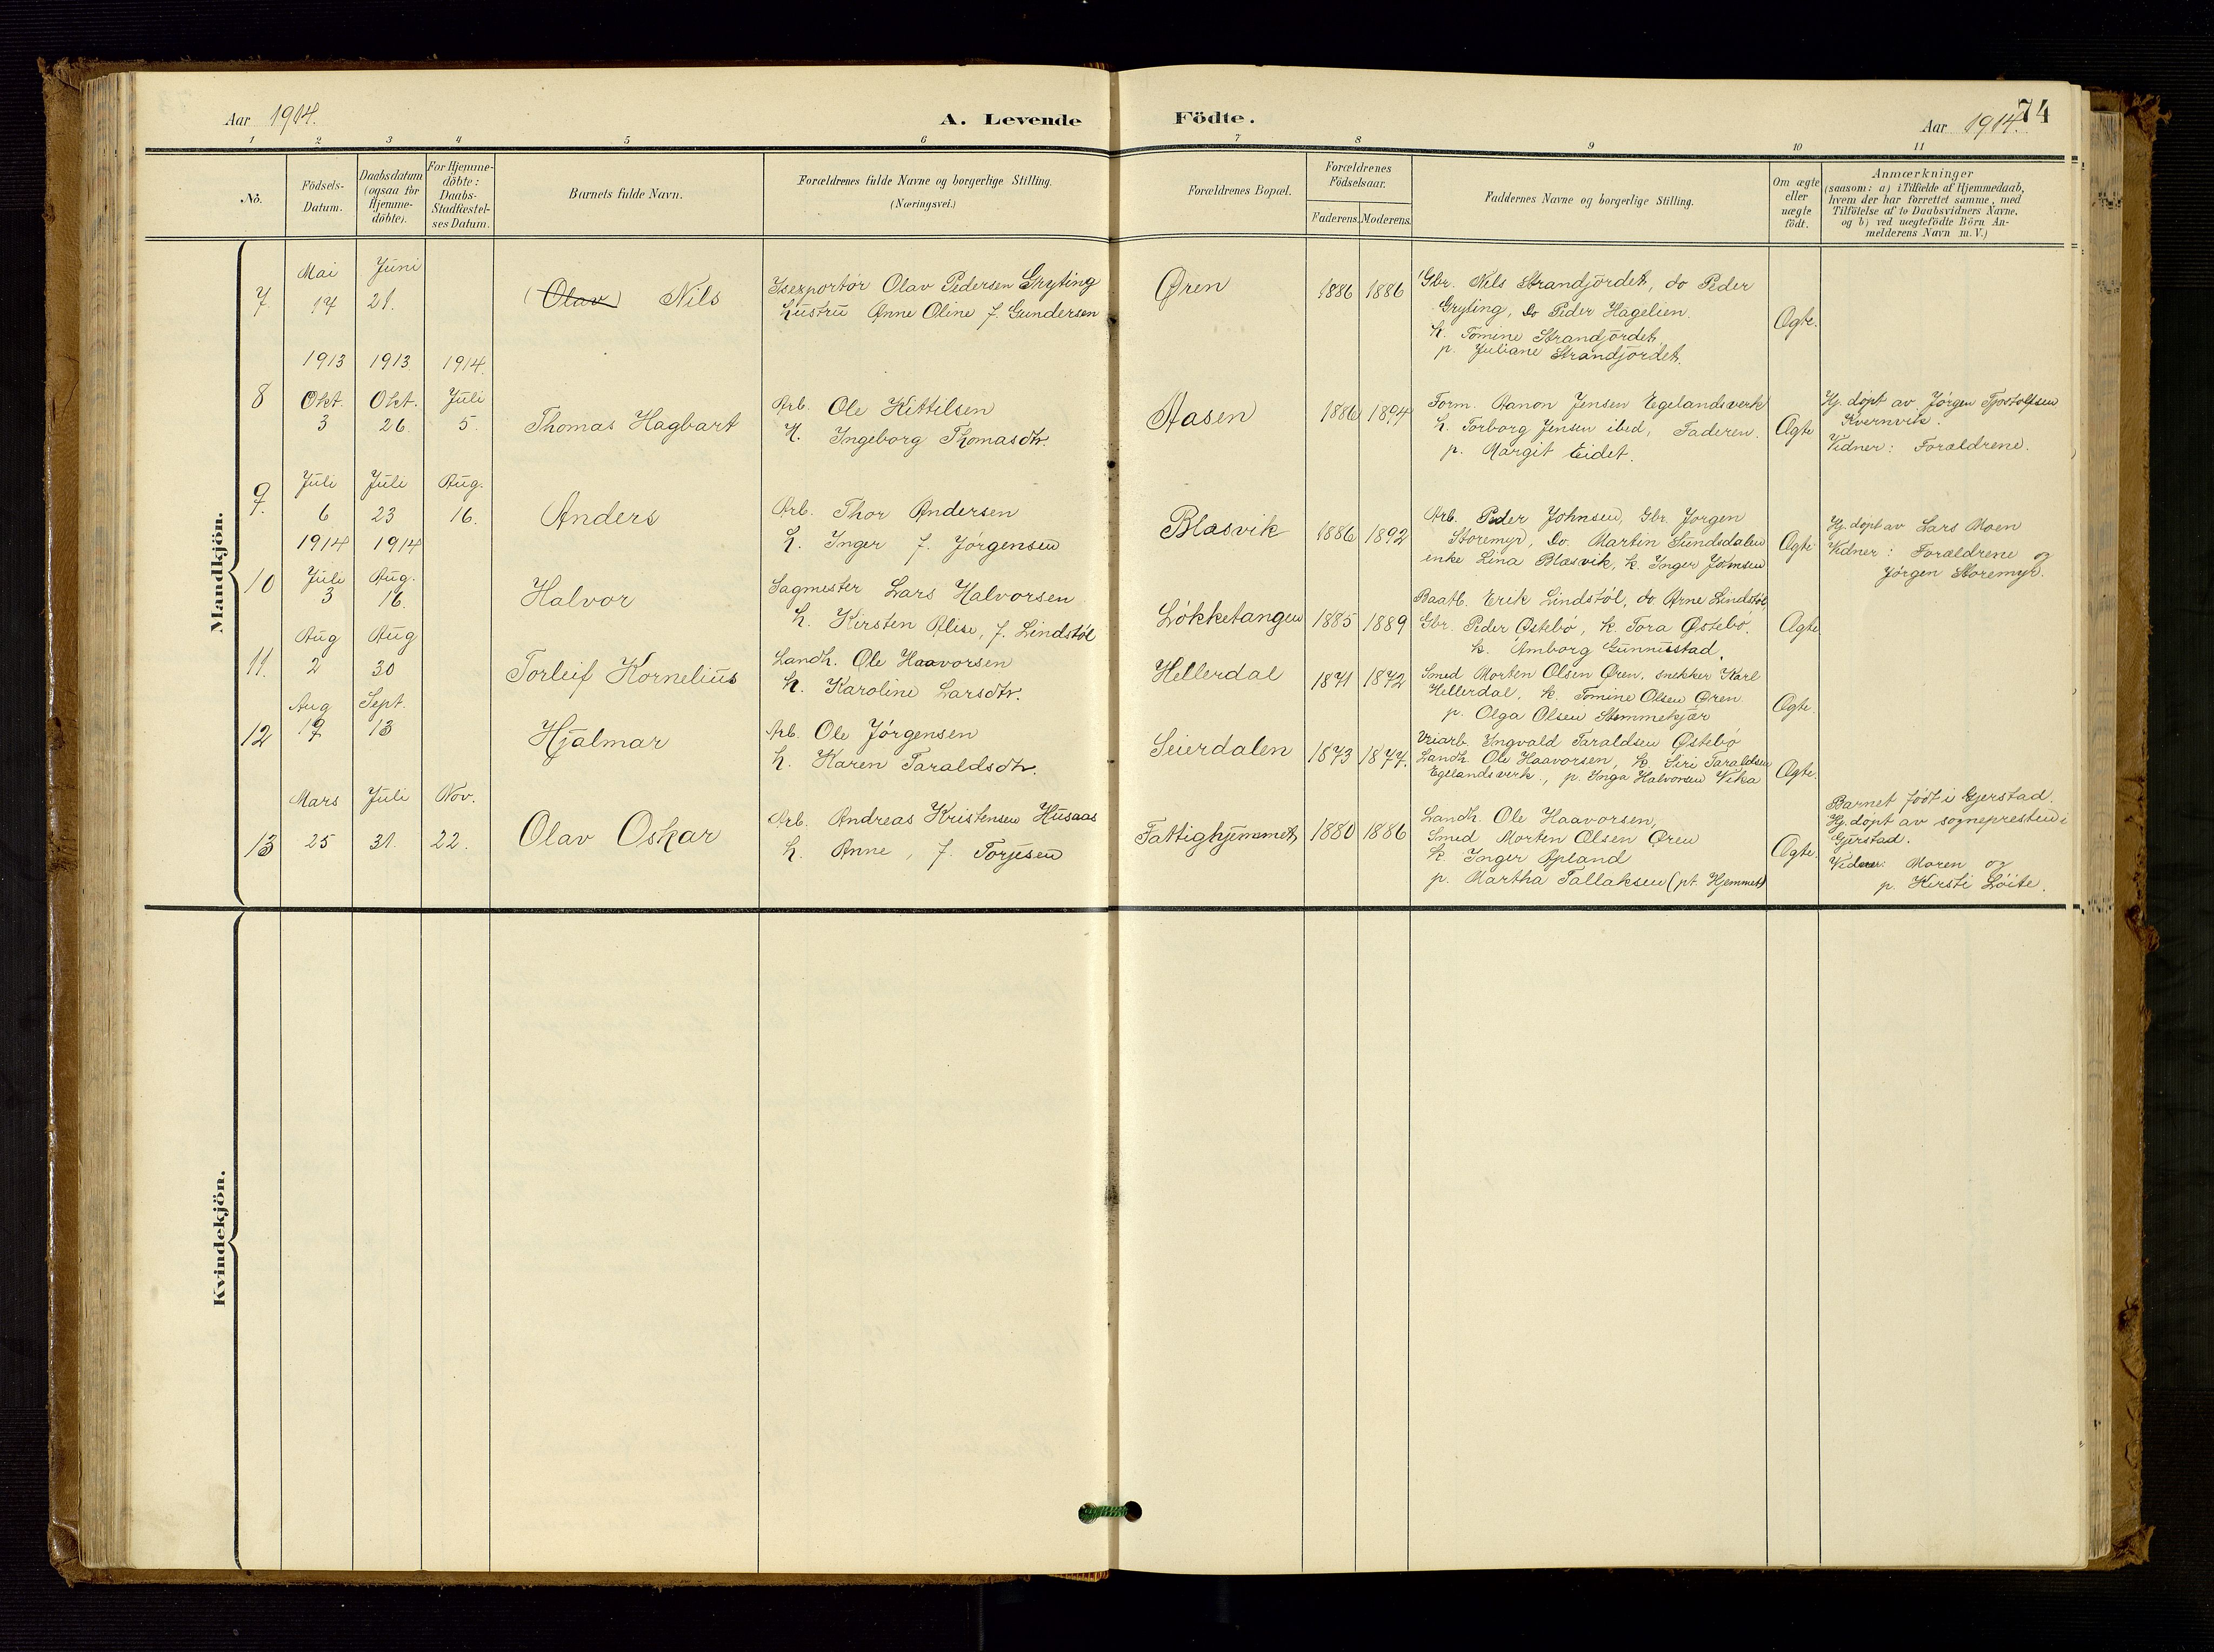 Aar 1914.
A. Levende Födte.
Aar 1914.
74
1 2 3 4 5 6 7 8 9 10 11
No.
Födsels-
Datum.
Daabsdatum
(ogsaa for
Hjemme-
döbte).
For Hjemme-
döbte:
Daabs-
Stadfæstel-
ses Datum.
Barnets fulde Navn.
Forældrenes fulde Navne og borgerlige Stilling.
(Næringsvei.)
Forældrenes Bopæl.
Forældrenes
Födselsaar.
Faderens. Moderens.
Faddernes Navne og borgerlige Stilling.
Om ægte
eller
uægte
födt.
Anmærkninger
(saasom: a) i Tilfælde af Hjemmedaab,
hvem der har forrettet samme, med
Tilföielse af to Daabsvidners Navne,
og b) ved uægtefödte Börn An-
melderens Navn m. V.)
Mandkjön.
7
Mai
14
Juni
21.
(Olav) Nils
Isexportör Olav Pedersen Gryting
Hustru Anne Oline f. Gundersen
Øren
1886 1886
Gbr. Nils Strandjordet, do Peder
Gryting, do Peder Hagelien.
k. Tomine Strandjordet,
p. Juliane Strandjordet.
Ægte.
1913 1913 1914.
8
Okt.
3
Okt.
26.
Juli
5.
Thomas Hagbart
Arb. Ole Kittilsen
H. Ingeborg Thomasdtr.
Aasen
1886 1894
Form. Aanon Jensen Egelandsverk
k. Torborg Jensen ibid, Faderen.
p. Margit Eidet.
Ægte
Hj. döpt av Jörgen Tjostolfsen
Kvernvik.
Vidner: Forældrene.
9.
Juli
6
Juli
23
Aug.
16.
Anders
Arb. Thor Andersen
H. Inger f. Jörgensen
Blæsvik
1886 1892
Arb. Peder Johnsen, Gbr. Jörgen
Storemyr, do. Martin Sundsdalen
enke Lina Blæsvik, k. Inger Johnsen
Ægte
Hj. döpt av Lars Moen
Vidner: Forældrene og
Jörgen Storemyr.
1914 1914
10
Juli
3
Aug.
16.
Halvor
Sagmester Lars Halvorsen
H. Kirsten Alise, f. Lindstöl
Lökketangen
1885 1889
Baatb. Erik Lindstöl, do. Arne Lindstöl,
Gbr. Peder Østebö, k. Tora Østebö.
k. Amborg Gunnustad.
Ægte
11.
Aug
2
Aug
30
Torleif Kornelius
Landh. Ole Haavorsen
H. Karoline Larsdtr.
Hellerdal
1871 1872
Smed Morten Olsen Øren, snekker Karl
Hellerdal, k. Tomine Olsen Øren
p. Olga Olsen Stemmekjær
Ægte.
12
Aug
Sept.
13
Hjalmar
Arb. Ole Jörgensen
H. Karen Taraldsdtr.
Seierdalen
1873 1877.
Veiarb. Ingvald Taraldsen Østebö
Landh. Ole Haavorsen, k. Siri Taraldsen
Egelandsverk., p. Inga Halvorsen Vika
Ægte.
13
Mars
25
Juli
31.
Nov.
22.
Olav Oskar
Arb. Andreas Kristensen Husaas
H. Anne, f. Torjesen
Fattighjemmet,
1880 1886
Landh. Ole Haavorsen,
Smed Morten Olsen Øren
k. Inger Apland
p. Martha Tallaksen (pt. Hjemmet)
Ægte.
Barnet födt i Gjerstad.
Hj. döpt av sognepresten i
Gjerstad.
Vidner: Maren og
p. Kirsti Löite.
Kvindekjön.